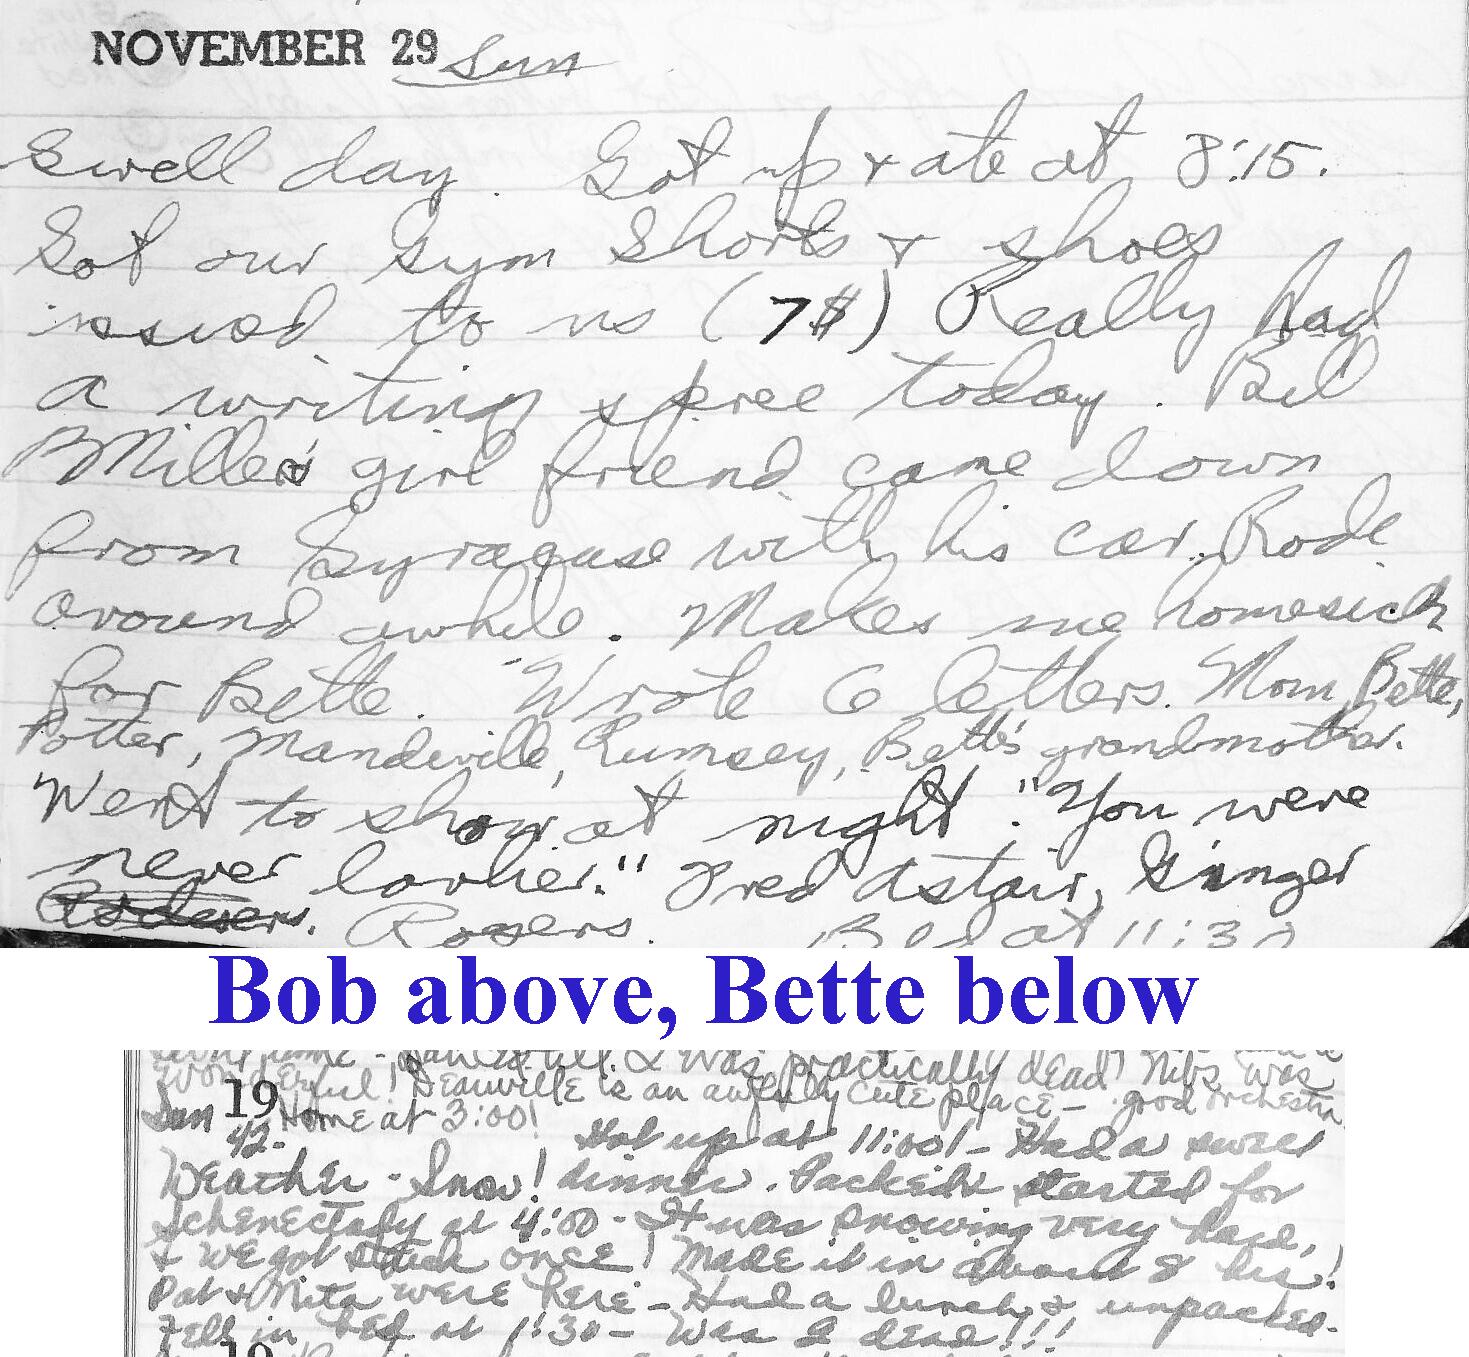 NOVEMBER 29 Sun
Swell day. Got up & ate at 8:15.
Got our gym shorts & shoes
issued to us (7$) Really had
a writing spree today. Bill
Miller's girl friend came down
from Syracuse with his car. Rode
around awhile. Makes me homesick
for Bette. Wrote 6 letters. Mom, Bette,
Potter, Mandeville, Rumsey, Bette's grandmother.
Went to show at night. "You were
never lovlier." Fred Astair, Ginger
Rogers. Bed at 11:30
Bob above, Bette below
I was practically dead! Nibs was
wonderful! Deauville is an awfully cute place - good orchestra
Sun 19 Home at 3:00!
42- Got up at 11:00! - Had a swell
Weather - Snow! dinner. Packed & started for
Schenectady at 4:00 - It was snowing very hard,
& we got stuck once! Made it in about 8 hrs!
Pat & Nita were here - Had a lunch & unpacked.
Fell in bed at 1:30 - Was I dead!!!